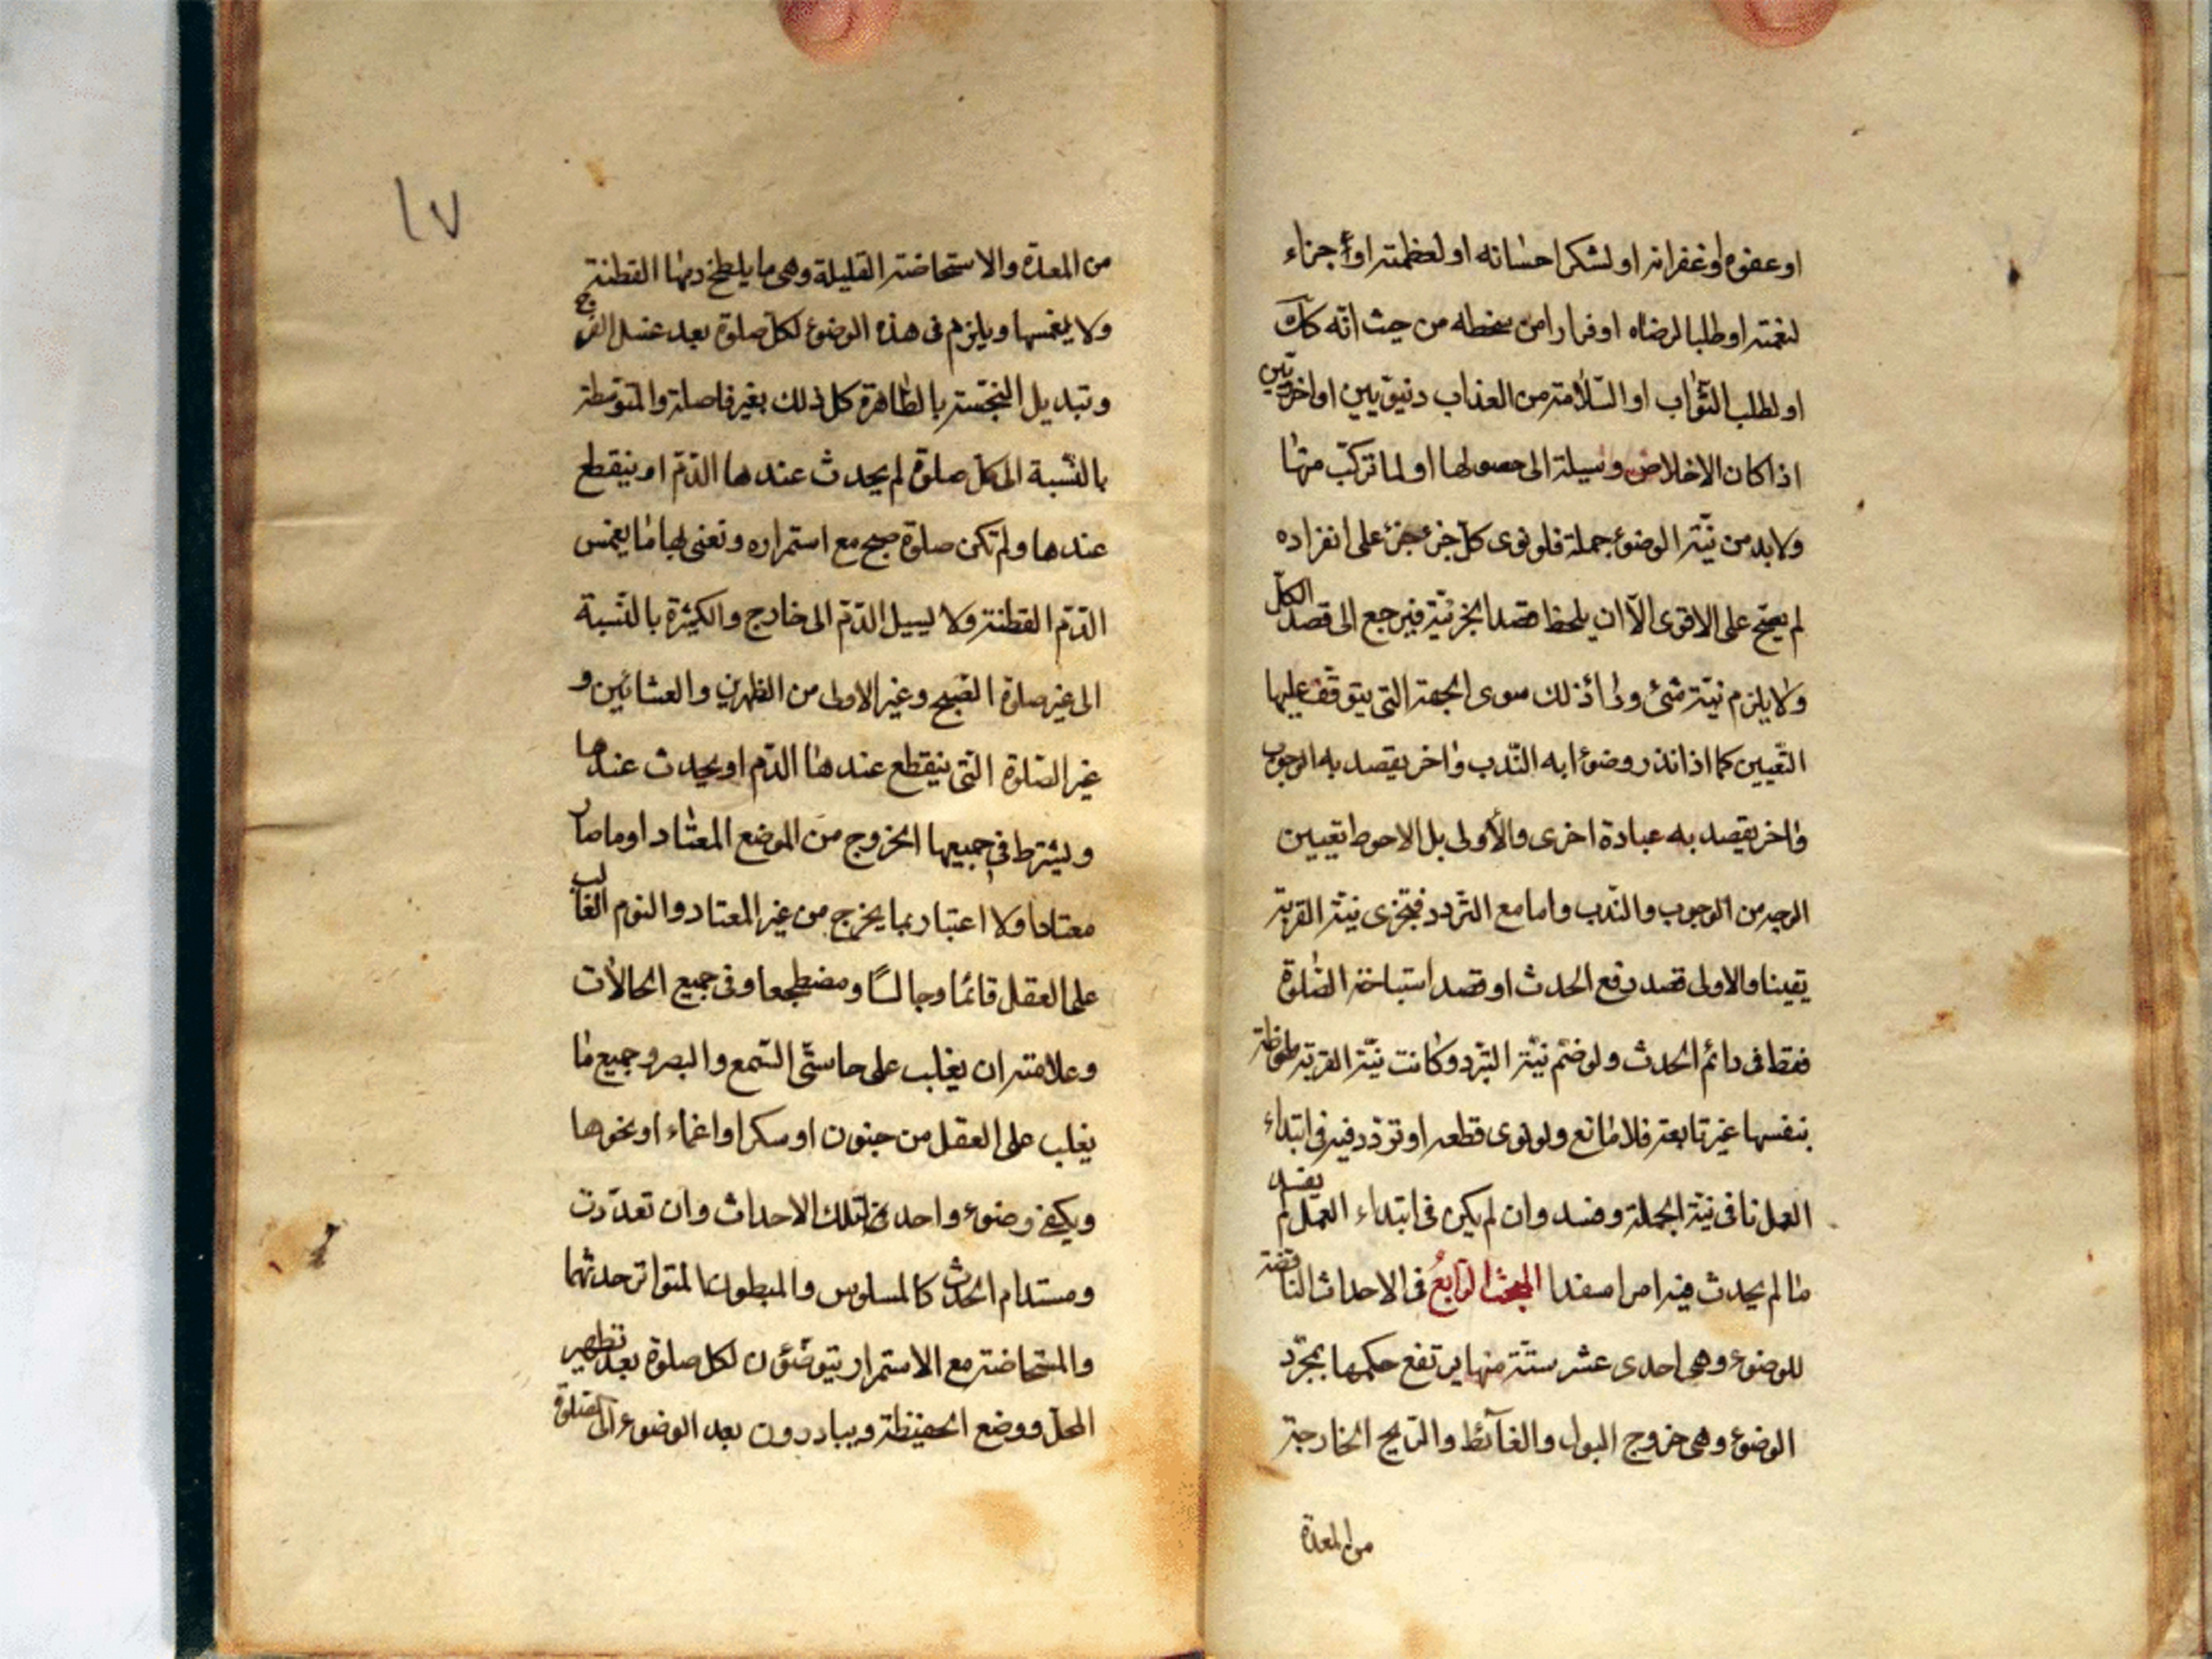 او عفوه او غفرانه او لشكر احسانه او لعظمته او جزاء
لنعمته او طلبا لرضاه او فرارا من سخطه من حيث انّه كذلك
او لطلب الثّواب او السّلامة من العذاب دنيويّين او اخرويّين
اذا كان الاخلاص وسيلة الى حصولها او لما تركّب منها
ولا بد من نيّة الوضوء جملة فلو نوى كلّ جزء جزء على انفراده
لم يصحّ على الاقوى الّا ان يلحظ قصد الجزئيّة فيرجع الى قصد الكلّ
ولا يلزم نيّة شئ وراء ذلك سوى الجهة التى يتوقف عليها
التّعيين كما اذا نذر وضوءا به النّدب واخر يقصد به الوجوب
واخر يقصد به عبادة اخرى والأولى بل الاحوط تعيين
الوجه من الوجوب والنّدب واما مع التردد فتجزى نيّة القربة
يقينا والاولى قصد رفع الحدث او قصد استباحة الصّلوة
فقط فى دائم الحدث ولو ضمّ نيّة التبرّد وكانت نيّة القربة ملحوظة
بنفسها غير تابعة فلا مانع ولو نوى قطعه او تردّد فيه فى ابتداء
العمل نافى نيّة الجملة وفسد وان لم يكن فى ابتداء العمل لم يفسد
ما لم يحدث فيه امرا مفسدا المبحث الرّابعُ فى الاحداث النّاقضة
للوضوء وهى احدى عشر ستّة منها يرتفع حكمها بمجرّد
الوضوء وهى خروج البول والغآئط والرّيح الخارجة
من المعدة
١٧
من المعدة والاستحاضة القليلة وهى ما يلطخ دمها القطنة
ولا يغمسها ويلزم فى هذه الوضوء لكلّ صلوة بعد غسل الفرج
وتبديل النّجسة بالطّاهرة كل ذلك بغير فاصلة والمتوسّطة
بالنّسبة الى كلّ صلوة لم يحدث عندها الدّم او ينقطع
عندها ولم تكن صلوة صبح مع استمراره ونعنى بها ما يغمس
الدّم القطنة ولا يسيل الدّم الى خارج والكثيرة بالنّسبة
الى غير صلوة الصّبح وغير الاولى من الظهرين والعشائين و
غير الصّلوة التى ينقطع عندها الدّم او يحدث عندها
ويشترط فى جميعها الخروج من الموضع المعتاد او ما صار
معتادا ولا اعتبار بما يخرج من غير المعتاد والنوم الغالب
على العقل قائما وجالسًا ومضطجعا وفى جميع الحالات
وعلامته ان يغلب على حاسّتى السّمع والبصر وجميع ما
يغلب على العقل من جنون او سكر او اغماء او نحوها
ويكفى وضوء واحد لتلك الاحداث وان تعدّدت
ومستدام الحدث كالمسلوس والمبطون المتواتر حدثهما
والمستحاضة مع الاستمرار يتوضّؤن لكل صلوة بعد تطهير
المحل ووضع الحفيظة ويبادرون بعد الوضوء الى الصّلوة